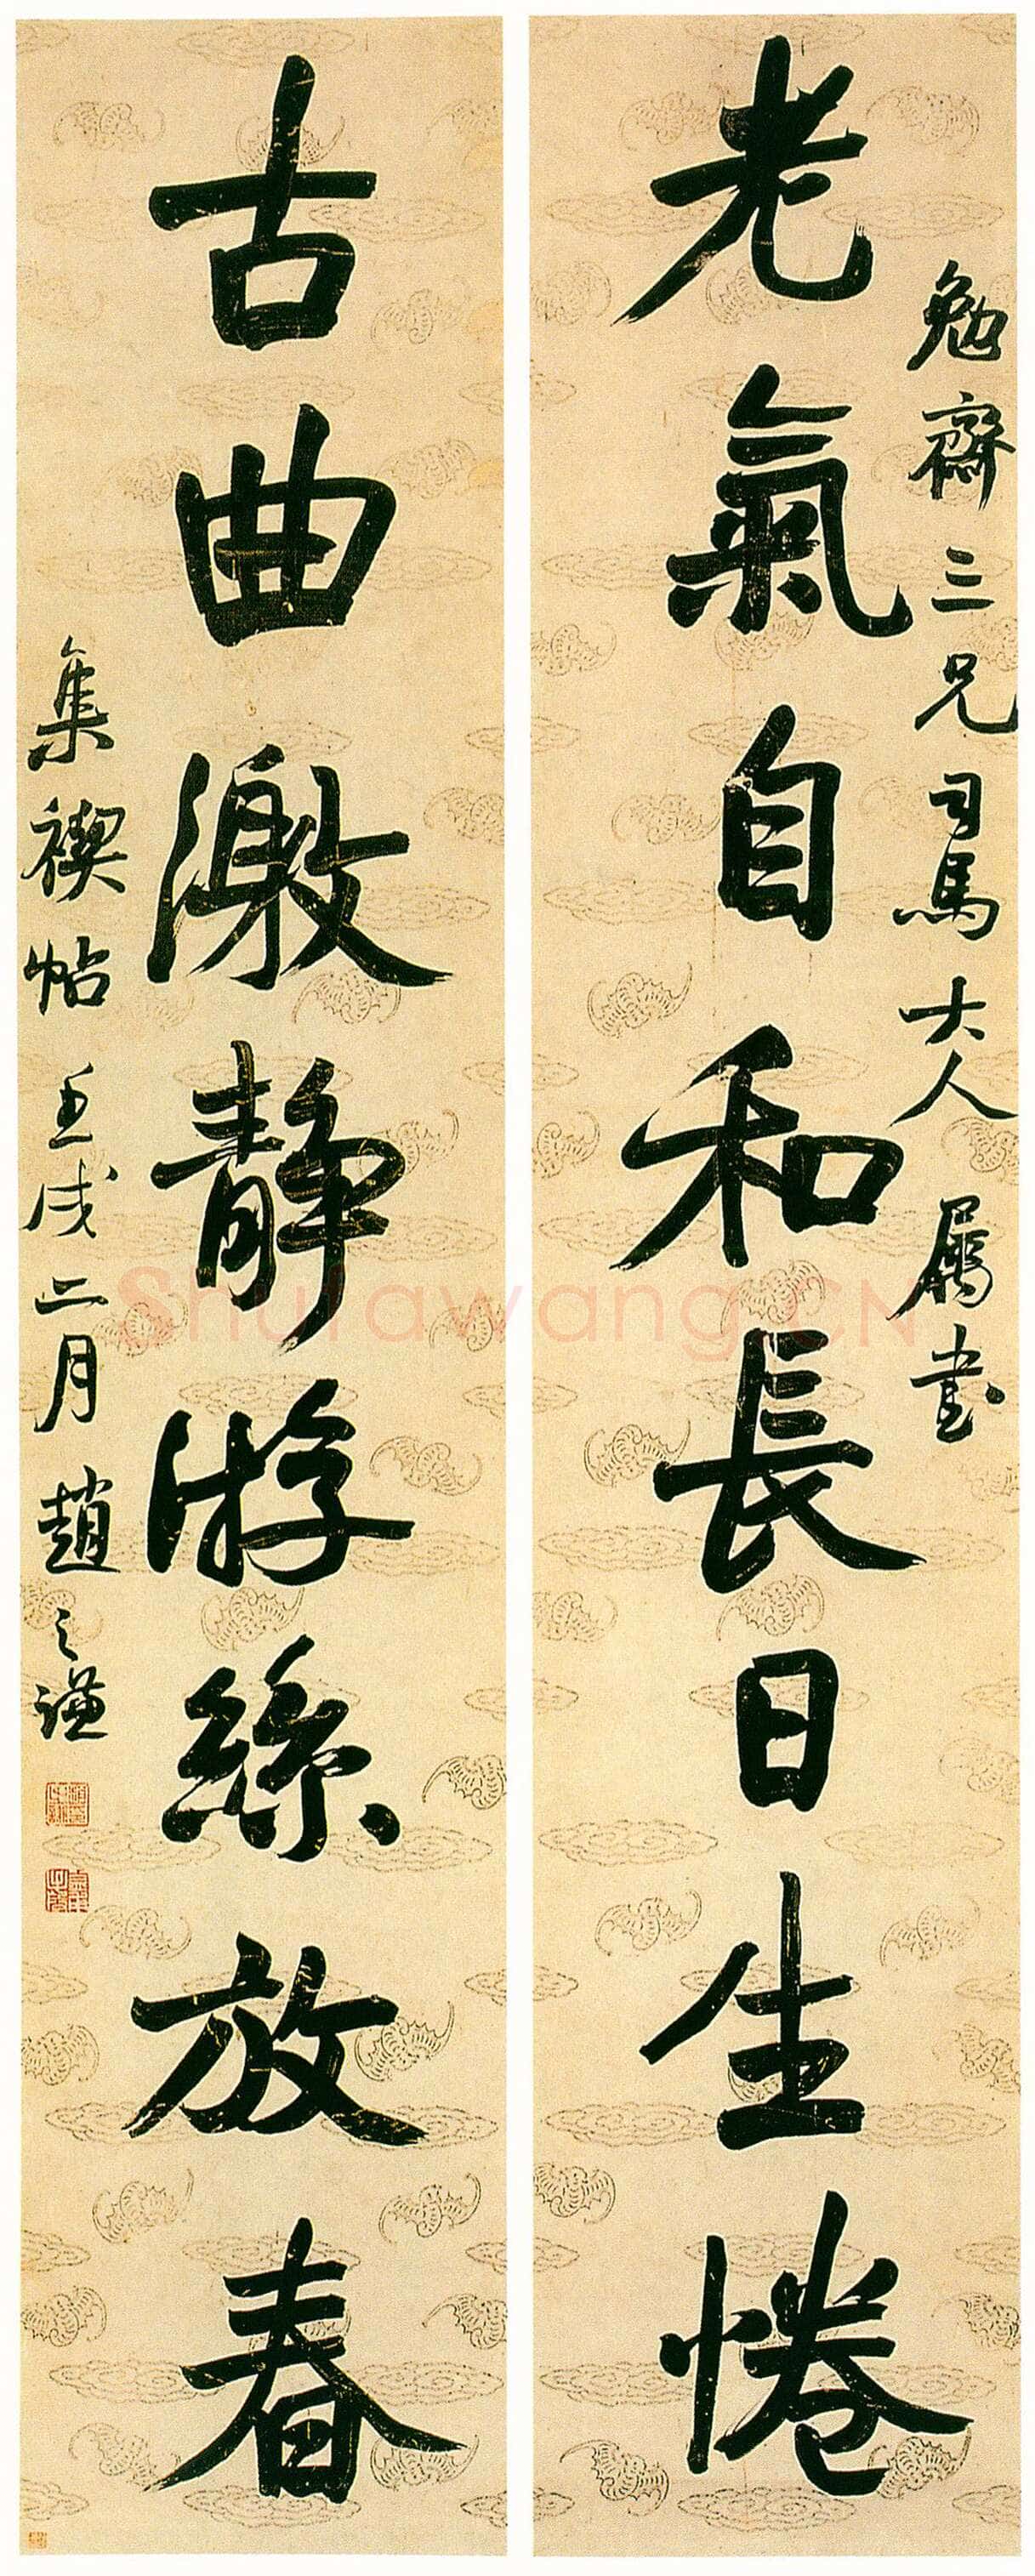 勉齋三兄司馬大人屬書
老氣自和長日生惓
古曲激靜游絲放春
集禊帖 壬戌二月 趙之謙
Shufawang.CN